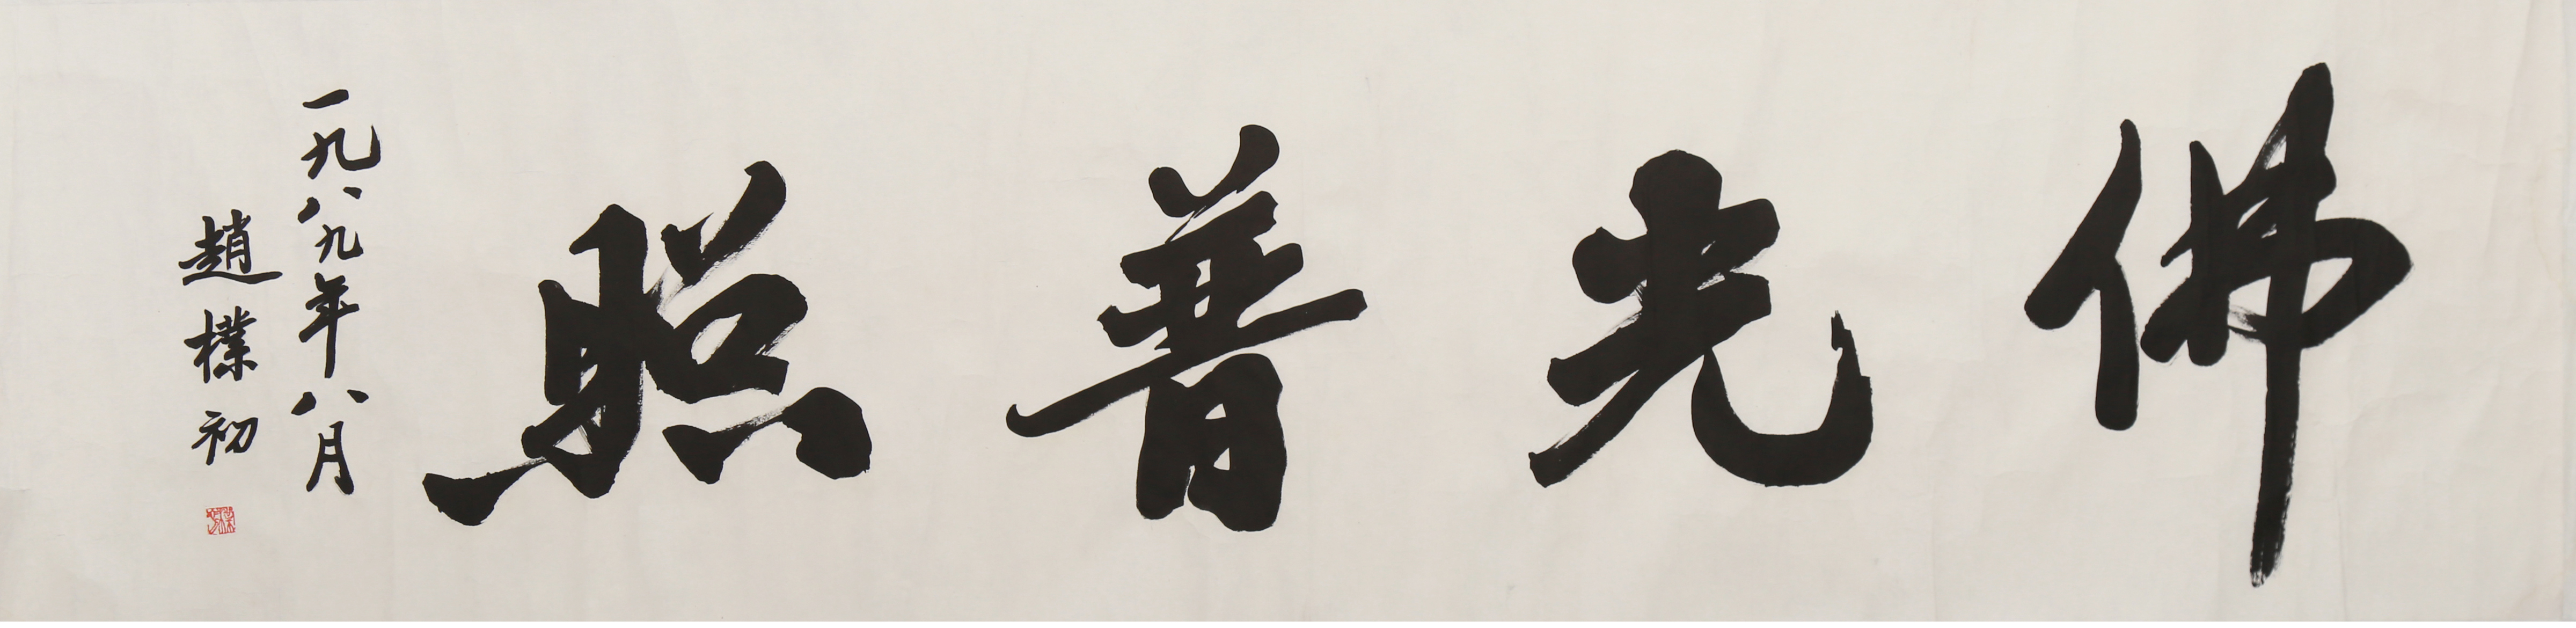 佛光普照
一九八九年八月
趙樸初